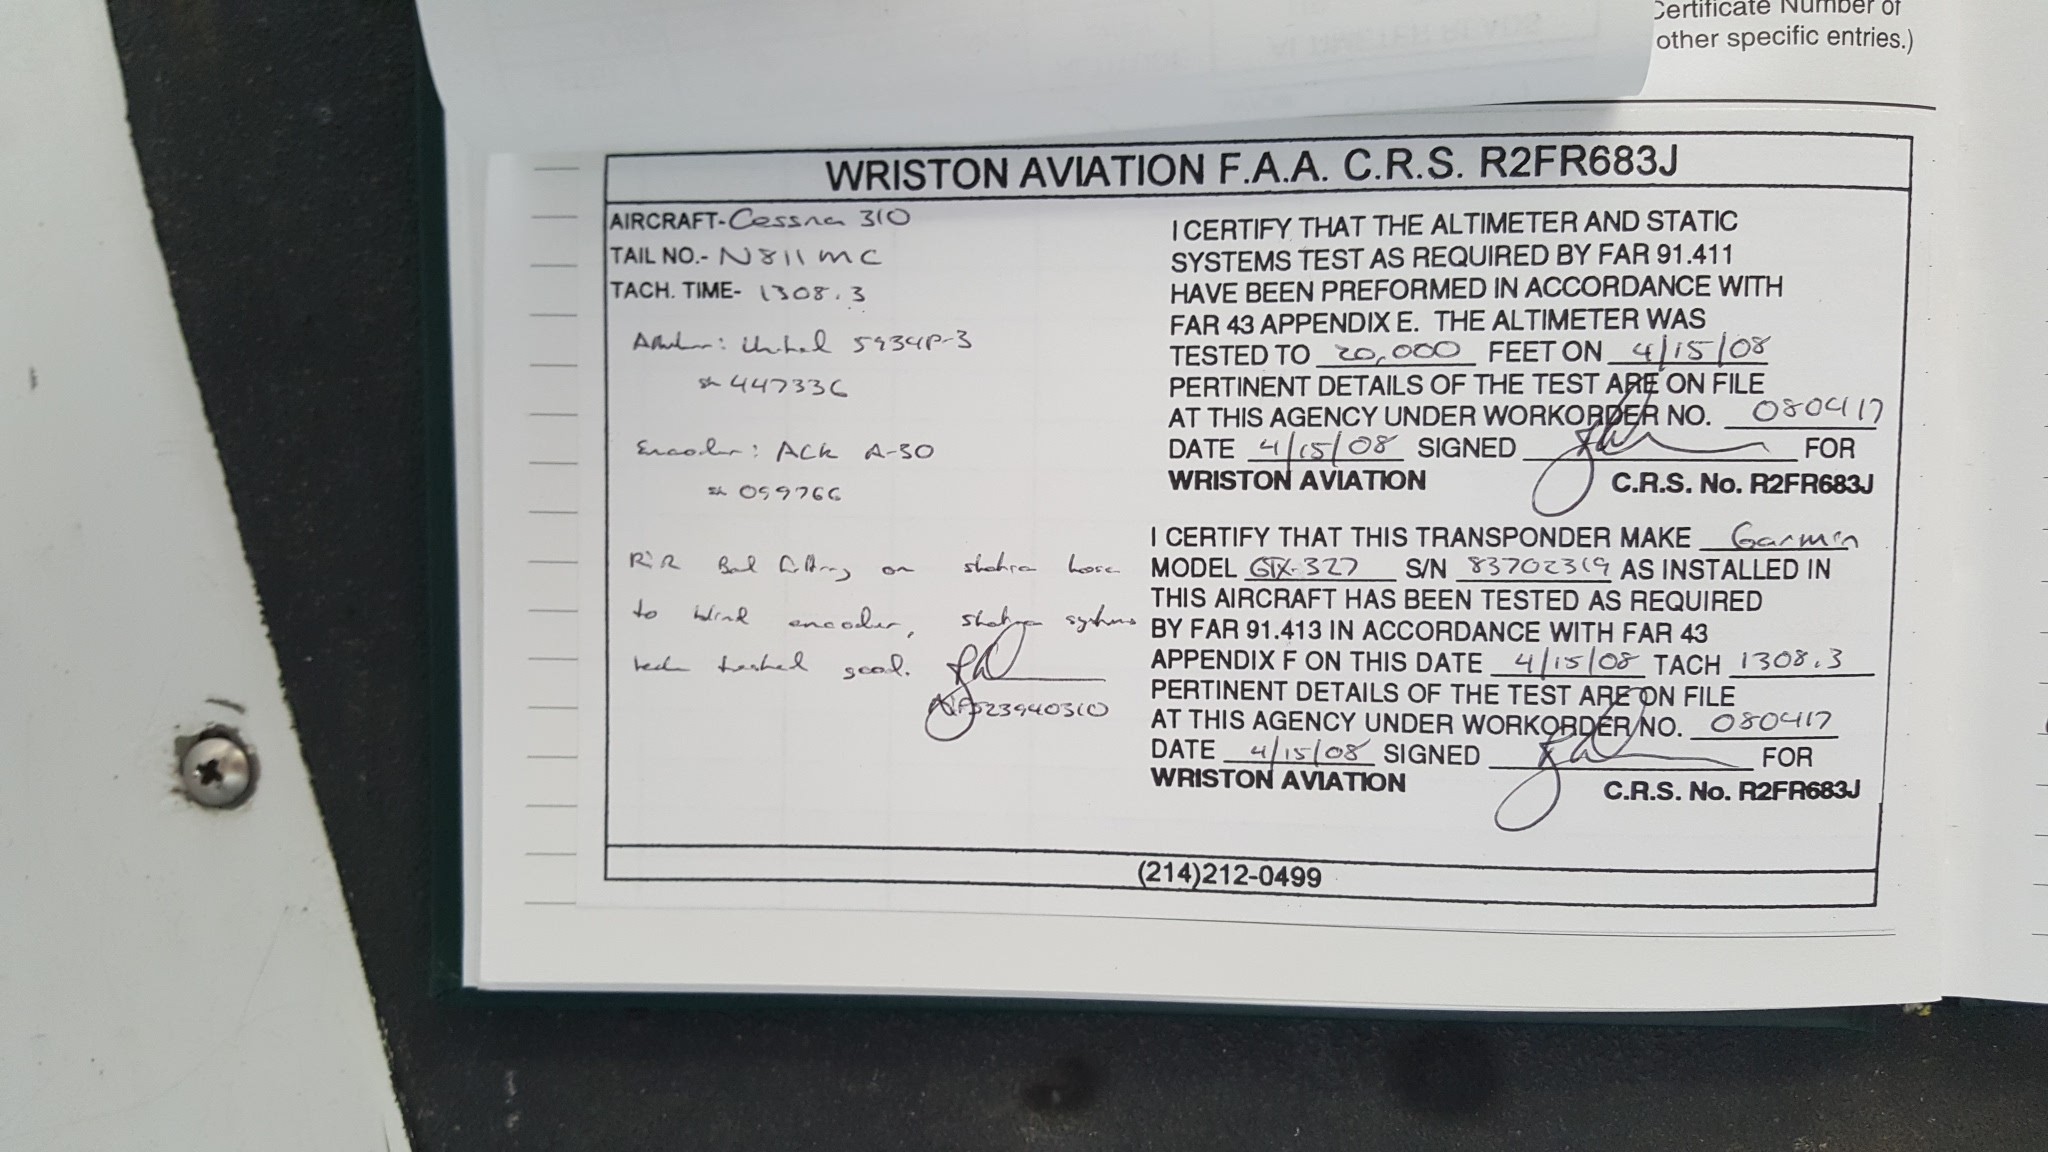 Certificate Number of
other specific entries.)
WRISTON AVIATION F.A.A. C.R.S. R2FR683J
AIRCRAFT- Cessna 310
TAIL NO.- N811MC
TACH. TIME- 1308.3
Altimeter: United 5934P-3
sn 447336
Encoder: ACK A-30
sn 099766
R&R Bad fitting on static hose
to blind encoder, static systems
leak tested good.
I CERTIFY THAT THE ALTIMETER AND STATIC
SYSTEMS TEST AS REQUIRED BY FAR 91.411
HAVE BEEN PREFORMED IN ACCORDANCE WITH
FAR 43 APPENDIX E. THE ALTIMETER WAS
TESTED TO 20,000 FEET ON 4/15/08
PERTINENT DETAILS OF THE TEST ARE ON FILE
AT THIS AGENCY UNDER WORKORDER NO. 080417
DATE 4/15/08 SIGNED FOR
WRISTON AVIATION C.R.S. No. R2FR683J
I CERTIFY THAT THIS TRANSPONDER MAKE Garmin
MODEL GTX-327 S/N 83702319 AS INSTALLED IN
THIS AIRCRAFT HAS BEEN TESTED AS REQUIRED
BY FAR 91.413 IN ACCORDANCE WITH FAR 43
APPENDIX F ON THIS DATE 4/15/08 TACH 1308.3
PERTINENT DETAILS OF THE TEST ARE ON FILE
AT THIS AGENCY UNDER WORKORDER NO. 080417
DATE 4/15/08 SIGNED FOR
WRISTON AVIATION C.R.S. No. R2FR683J
(214)212-0499